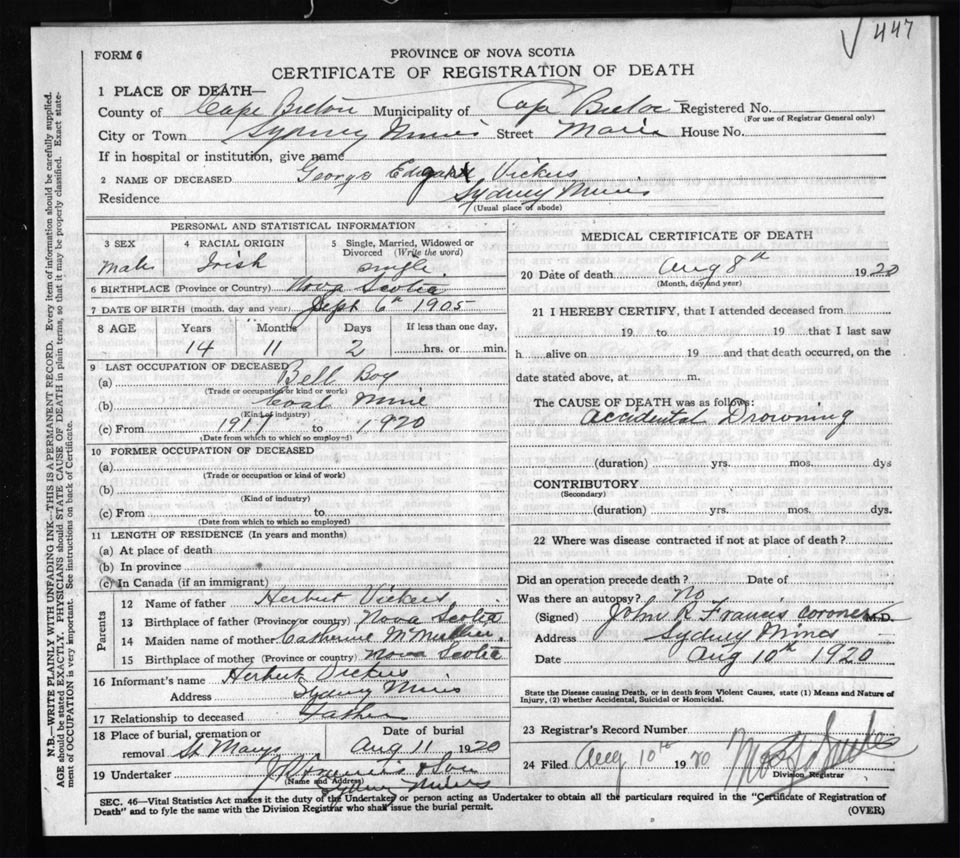 √ 447
FORM 6
PROVINCE OF NOVA SCOTIA
CERTIFICATE OF REGISTRATION OF DEATH
1 PLACE OF DEATH—
County of Cape Breton Municipality of Cape Breton Registered No.
(For use of Registrar General only)
City or Town Sydney Mines Street Main House No.
If in hospital or institution, give name
2 NAME OF DECEASED George Vickers
Residence Sydney Mines
(Usual place of abode)
PERSONAL AND STATISTICAL INFORMATION
3 SEX 4 RACIAL ORIGIN 5 Single, Married, Widowed or Divorced (Write the word)
Male Irish single
6 BIRTHPLACE (Province or Country) Nova Scotia
7 DATE OF BIRTH (month, day and year) Sept 6th 1905
8 AGE Years Months Days If less than one day,
14 11 2 hrs. or min.
9 LAST OCCUPATION OF DECEASED
(a) Bell Boy
(Trade or occupation or kind or work)
(b) Coal Mine
(Kind of industry)
(c) From 1917 to 1920
(Date from which to which so employed)
10 FORMER OCCUPATION OF DECEASED
(a)
(Trade or occupation or kind of work)
(b)
(Kind of industry)
(c) From to
(Date from which to which so employed)
11 LENGTH OF RESIDENCE (In years and months)
(a) At place of death
(b) In province
(c) In Canada (if an immigrant)
Parents
12 Name of father Herbert Vickers
13 Birthplace of father (Province or country) Nova Scotia
14 Maiden name of mother Catherine
15 Birthplace of mother (Province or country) Nova Scotia
16 Informant's name Herbert Vickers
Address Sydney Mines
17 Relationship to deceased Father
18 Place of burial, cremation or removal St Marys Date of burial Aug 11 1920
19 Undertaker Francis & Son
(Name and Address)
Sydney Mines
MEDICAL CERTIFICATE OF DEATH
20 Date of death Aug 8th 1920
(Month, day and year)
21 I HEREBY CERTIFY, that I attended deceased from
19 to 19 that I last saw
h alive on 19 and that death occurred, on the
date stated above, at m.
The CAUSE OF DEATH was as follows:
Accidental Drowning
(duration) yrs. mos. dys
CONTRIBUTORY
(Secondary)
(duration) yrs. mos. dys.
22 Where was disease contracted if not at place of death?
Did an operation precede death? Date of
Was there an autopsy? No
(Signed) John R Francis coroner M.D.
Address Sydney Mines
Date Aug 10th 1920
State the Disease causing Death, or in death from Violent Causes, state (1) Means and Nature of
Injury, (2) whether Accidental, Suicidal or Homicidal.
23 Registrar's Record Number
24 Filed Aug 10th 1920
Division Registrar
SEC. 46—Vital Statistics Act makes it the duty of the Undertaker or person acting as Undertaker to obtain all the particulars required in the "Certificate of Registration of
Death" and to fyle the same with the Division Registrar who shall issue the burial permit. (OVER)
N.B.—WRITE PLAINLY WITH UNFADING INK—THIS IS A PERMANENT RECORD. Every item of information should be carefully supplied.
AGE should be stated EXACTLY. PHYSICIANS should STATE CAUSE OF DEATH in plain terms, so that it may be properly classified. Exact state-
ment of OCCUPATION is very important. See instructions on back of Certificate.